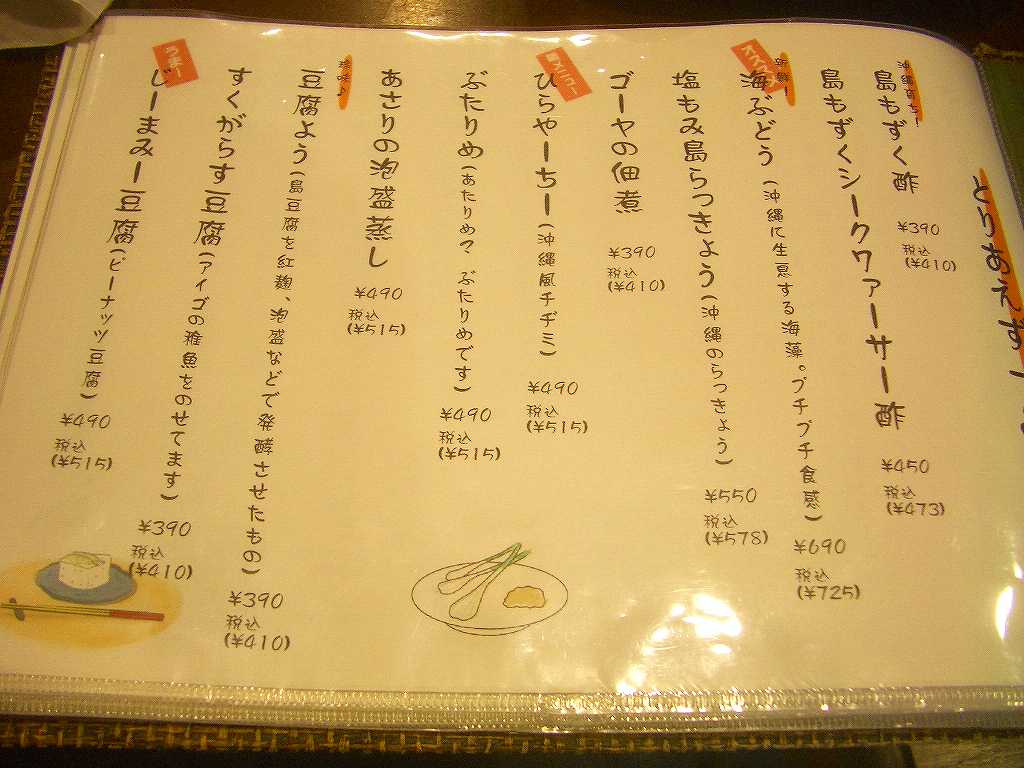 とりあえず
沖縄育ち!
島もずく酢
¥390
税込
(¥410)
島もずくシークヮーサー酢
¥450
税込
(¥473)
オススメ
新鮮!
海ぶどう(沖縄に生息する海藻。プチプチ食感)
¥690
税込
(¥725)
塩もみ島らっきょう(沖縄のらっきょう)
¥550
税込
(¥578)
ゴーヤの佃煮
¥390
税込
(¥410)
メニュー
ひらやーちー(沖縄風チヂミ)
¥490
税込
(¥515)
ぶたりめ(あたりめ？ぶたりめです)
¥490
税込
(¥515)
あさりの泡盛蒸し
¥490
税込
(¥515)
珍味♪
豆腐よう(島豆腐を紅麹、泡盛などで発酵させたもの)
¥390
税込
(¥410)
すくがらす豆腐(アイゴの稚魚をのせてます)
¥390
税込
(¥410)
うまー
じーまみー豆腐(ピーナッツ豆腐)
¥490
税込
(¥515)